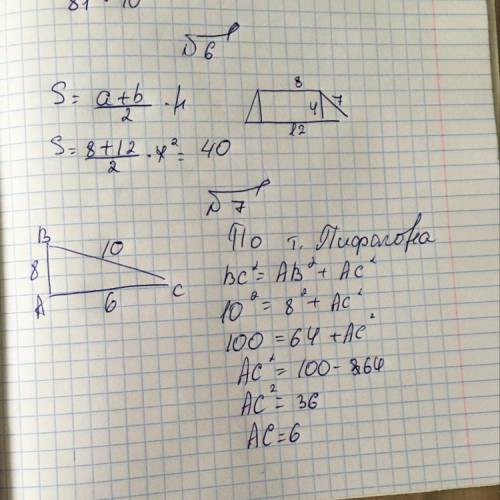 81 · 10
№6
S = a+b/2 · h
8
4
7
12
S = 8+12/2 · 4² = 40
№7
По т. Пифагора
B
10
8
A
6
C
BC² = AB² + AC²
10² = 8² + AC²
100 = 64 + AC²
AC² = 100 - 64
AC² = 36
AC = 6